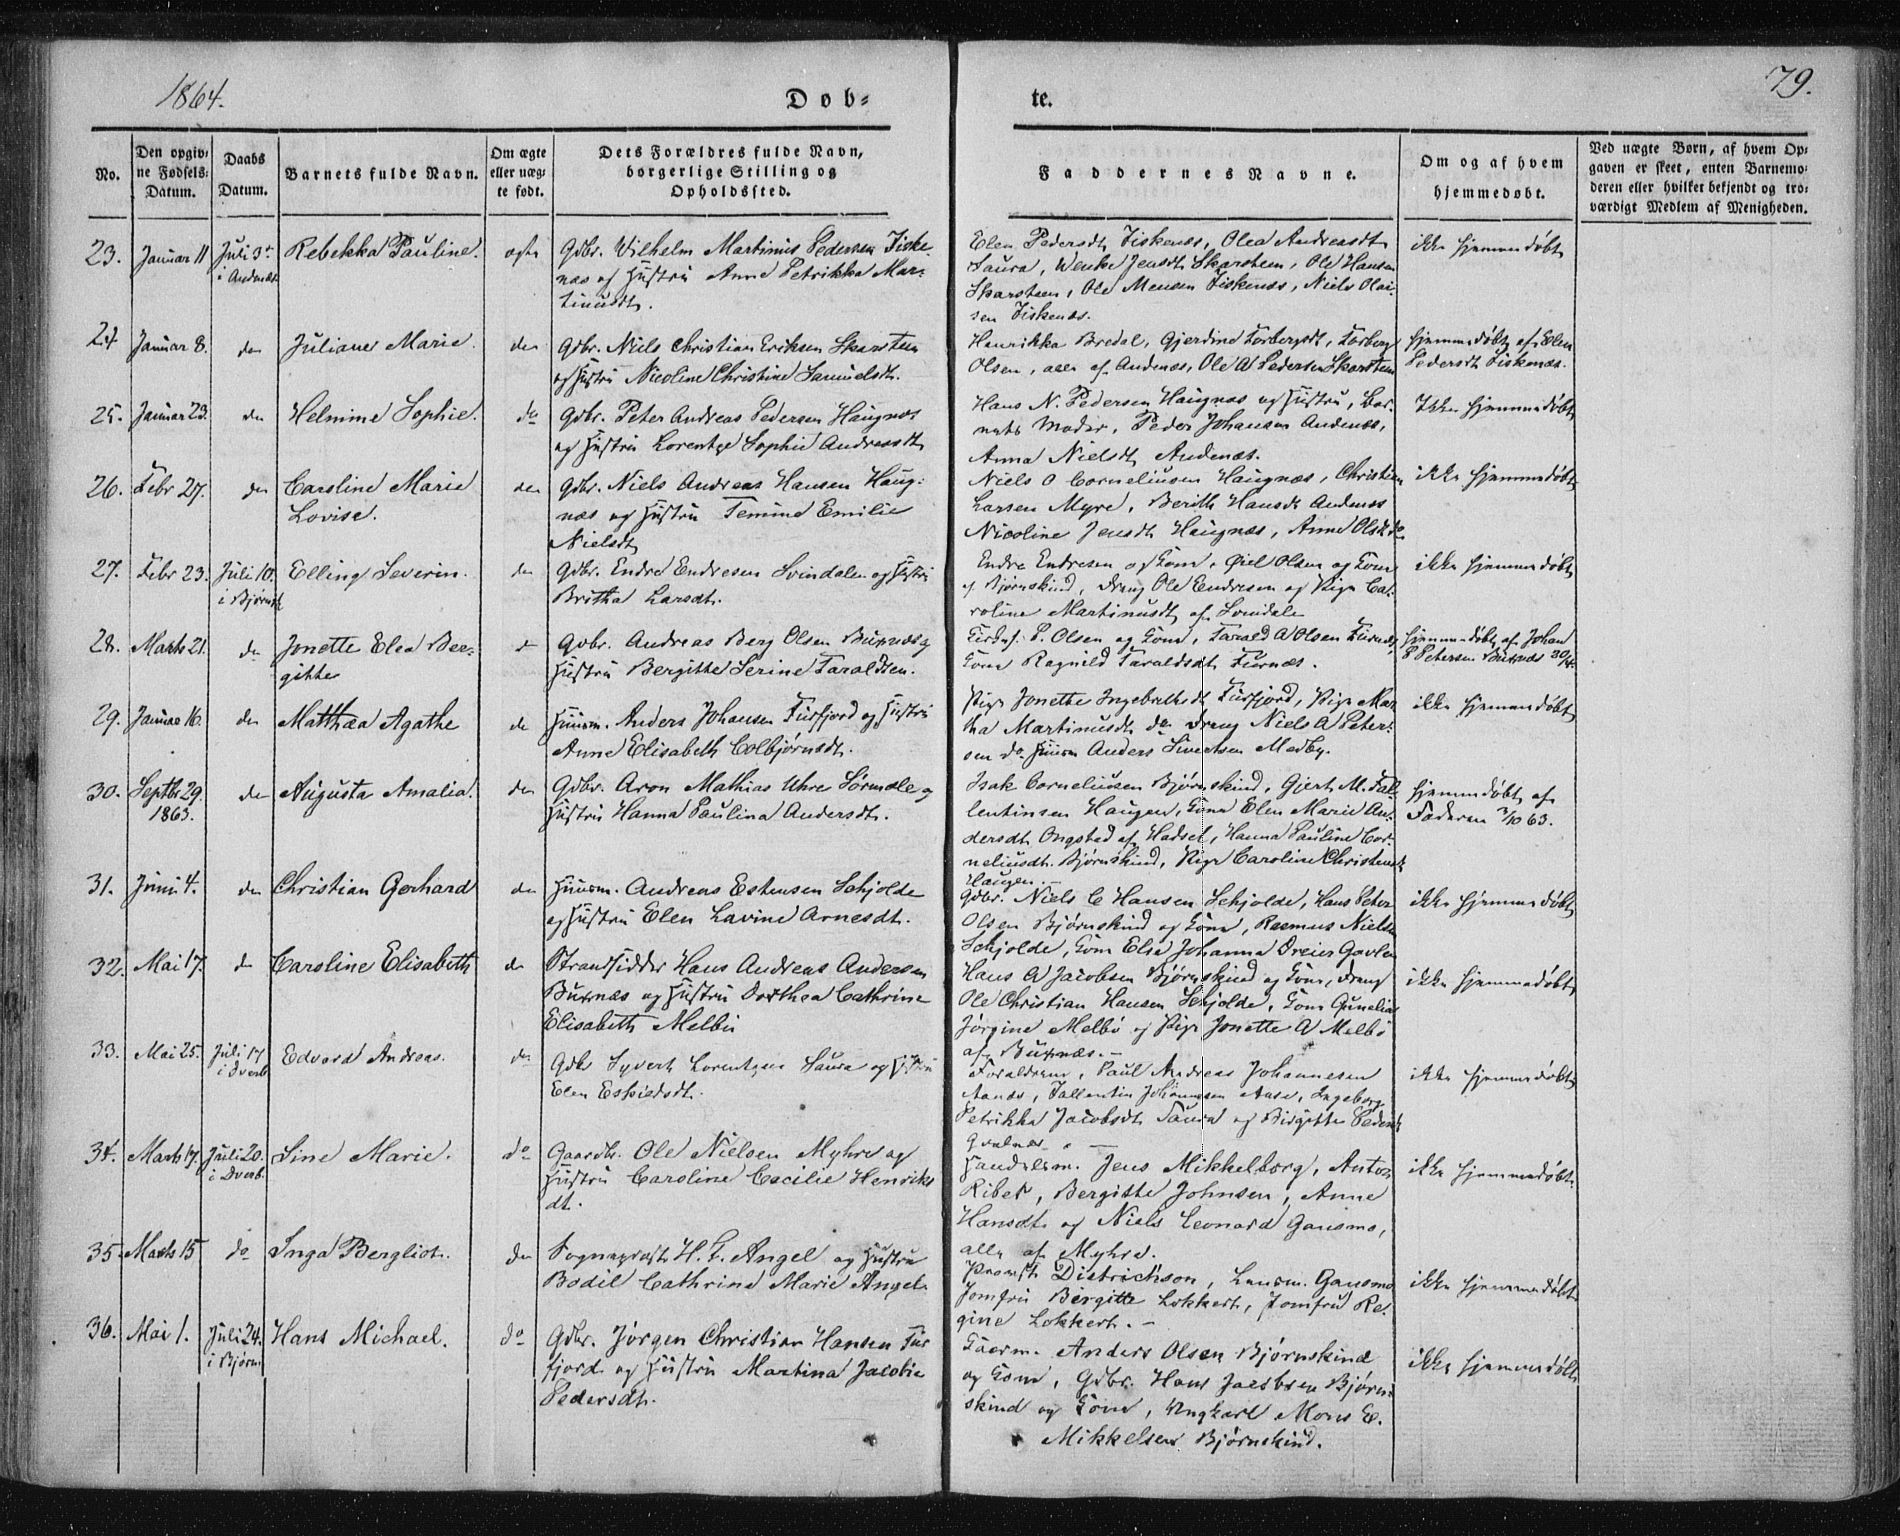 1864.
Døb-
te.
79.
No.
Den opgiv-
ne Fødsels-
Datum.
Daabs
Datum.
Barnets fulde Navn.
Om ægte
eller uæg-
te født.
Dets Forældres fulde Navn,
borgerlige Stilling og
Opholdsfted.
Faddernes Navne.
Om og af hvem
hjemmedøbt.
Ved uægte Børn, af hvem Op-
gaven er skeet, enten Barnemo-
deren eller hvilket bekjendt og tro-
værdigt Medlem af Menigheden.
23. Januar 11 Juli 3. Rebekka Pauline. ægte Gdbr. Wilhelm Martinus Pedersen Fiske-
i Andenæs
næs og Hustru Anne Petrikka Mar-
tinusdt.
Elen Pedersdt Fiskenæs, Olea Andreasdt
Saura, Wenke Jensdt Skarsteen, Ole Hansen
Skarsteen, Ole Mensen Fiskenæs, Niels Olai-
sen Fiskenæs.
ikke hjemmedøbt
24 Januar 8. do Juliane Marie do Gdbr. Niels Christian Eriksen Skarsteen
og Hustru Nicoline Christine Samuelsdt.
Henrikka Bredal, Gjerdine Torbergsdt, Torberg
Olsen, alle af Andenæs, Ole A Pedersen Skarsteen
hjemmedøbt af Elen
Pedersdt Fiskenæs.
25. Januar 23. do Helmine Sophie. do Gdbr. Peter Andreas Pedersen Haugnæs
og Hustru Lorentze Sophie Andreasdt
Hans N. Pedersen Haugnæs og Hustru, Bar-
nets Moder, Peder Johansen Andenæs,
Anna Nielsdt Andenæs.
Ikke hjemmedøbt
26. Febr 27. do Caroline Marie do Gdbr. Niels Andreas Hansen Haug-
Lovise.
næs og Hustru Femine Emilie
Nielsdt
Niels O Corneliusen Haugnæs, Christian
Larsen Myre, Berith Hansdt Andenæs
Nicoline Jensdt Haugnæs, Anne Olsdt do
ikke hjemmedøbt
27. Febr 23. Juli 10. Elling Severin. do Gdbr. Endre Endresen Svindalen og Hustru
i Bjørnsk
Britha Larsdt.
Endre Endresen og Kone, Ole Olsen og Kone
af Bjørnskind, Dreng Ole Endresen og Pige Ca-
roline Martinusdt af Svindale
ikke hjemmedøbt
28. Marts 21. do Jonette Elea Ber- Gdbr. Andreas Berg Olsen Buxnæs og
gitte
Hustru Bergitte Serine Taraldsen.
P. Olsen og Kone, Tarald A Olsen Furnæs,
Kone Ragnild Taraldsdt Furnæs.
hjemmedøbt af Johan
P Petersen Buxnæs 30/4.
29. Januar 16. do Matthæa Agathe do Huusm. Anders Johansen Fusfjord og Hustru
Anne Elisabeth Colbjørnsdt.
Pige Jonette Ingebrethsdt Fusfjord, Pige Mar-
tha Martinusdt do Dreng Niels A Peter-
sen do Huusm Anders Sivertsen Medby.
ikke hjemmedøbt
30. Septb 29. do Augusta Amalia. do Gdbr. Aron Mathias Uhre Sørmæle og
1863.
Hustru Hanna Paulina Andersdt.
Isak Corneliusen Bjørnskind, Gjert M. Fal-
lentinsen Haugen, Kone Elen Marie An-
dersdt Ongstad af Hadsel, Hanna Pauline Cor-
neliusdt. Bjørnskind, Pige Caroline Christensdt
Haugen.
hjemmedøbt af
Faderen 2/10 63.
31. Juni 4. do Christian Gerhard do Huusm. Andreas Estensen Schjolde
og Hustru Elen Lavine Arnesdt.
Gdbr. Niels C Hansen Schjolde, Hans Peter
Olsen Bjørnskind og Kone, Rasmus Nielsen
Schjolde, Kone Else Johanna Dreier Gavlen
ikke hjemmedøbt
32. Mai 17. do Caroline Elisabeth do Strandsidder Hans Andreas Andersen
Buxnæs og Hustru Dorthea Cathrine
Elisabeth Melbu
Hans A Jacobsen Bjørnskind og Kone, Dreng
Ole Christian Hansen Schjolde, Kone Gunelia
Jørgine Melbö og Pige Jonette A Melbö
af Buxnæs.
ikke hjemmedøbt
33. Mai 25. Juli 17 Edvard Andreas. do Gdbr Syvert Lorentzen Saura og Hustru
i Dverb
Elen Eskildsdt.
Forældrene, Paul Andreas Johannesen
Aanes, Fallentin Johannesen Aase, Ingeborg
Petrikka Jacobsdt Saura og Birgitte Pedersdt
ikke hjemmedøbt
34. Marts 17. Juli 20. Sine Marie. do Gaardb. Ole Nielsen Myhre og
i Dverb.
Hustru Caroline Cecilie Henriks
dt.
Handelsm. Jens Mikkelborg, Anton
Ribes, Bergitte Johnsen, Anne
Hansdt og Niels Leonard Gausmo,
alle af Myhre.
ikke hjemmedøbt.
35. Marts 15 do Inga Bergliot. do Sognepræst H. G. Angel og Hustru
Bodil Cathrine Marie Angel.
Provst Districhson, Lensm. Gausmo
Jomfru Bergitte Lokkert, Jomfru Re-
gine Lokkert.
ikke hjemmedøbt
36. Mai 1. Juli 24. Hans Michael. do Gdbr. Jørgen Christian Hansen Fus-
i Bjørnsk
fjord og Hustru Martina Jacobia
Pedersdt.
Anders Olsen Bjørnskind
og Kone, Gdbr. Hans Jacobsen Bjørn-
skind og Kone, Ungkarl Mons E.
Mikkelsen Bjørnskind.
ikke hjemmedøbt